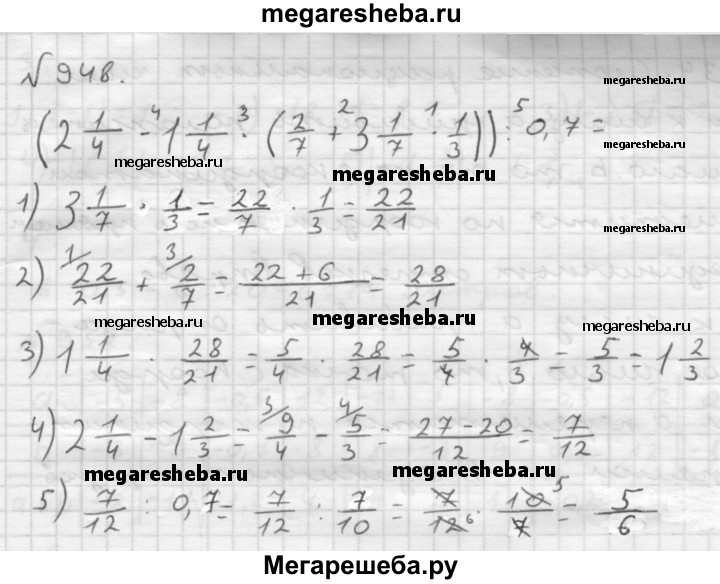 megaresheba.ru
№ 948.
megaresheba.ru
(2 1/4 - 1 1/4 · (2/7 + 3 1/7 · 1/3)) : 0,7 =
4 3 2 1 5
megaresheba.ru
megaresheba.ru
1) 3 1/7 · 1/3 = 22/7 · 1/3 = 22/21
2) 1/ 22/21 + 3/ 2/7 = (22 + 6)/21 = 28/21
megaresheba.ru
megaresheba.ru
megaresheba.ru
3) 1 1/4 · 28/21 = 5/4 · 28/21 = 5/4 · 4/3 = 5/3 = 1 2/3
4) 2 1/4 - 1 2/3 = 3/ 9/4 - 4/ 5/3 = (27 - 20)/12 = 7/12
megaresheba.ru
megaresheba.ru
5) 7/12 : 0,7 = 7/12 : 7/10 = 7/12 6 · 10 5/7 = 5/6
Мегарешеба.ру